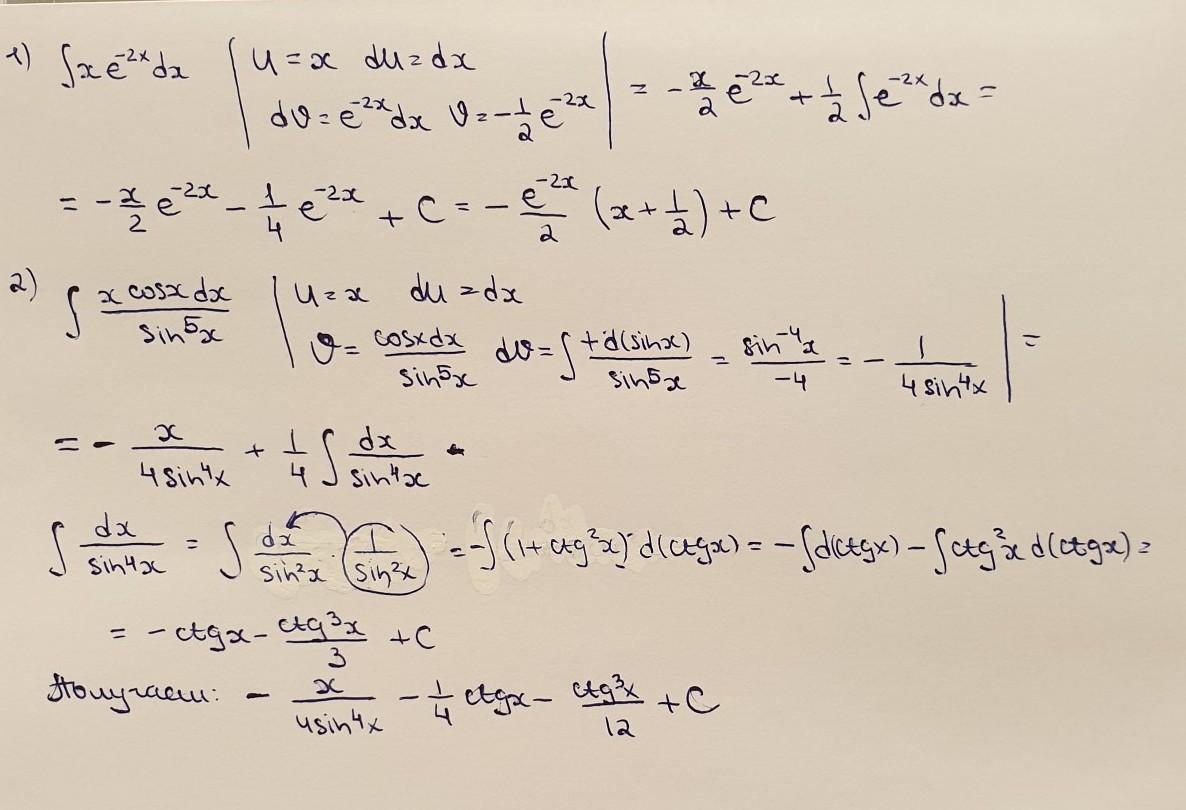 1) ∫xe^{-2x}dx | u = x du = dx dv = e^{-2x}dx v = -\frac{1}{2}e^{-2x} | = -\frac{x}{2}e^{-2x} + \frac{1}{2}∫e^{-2x}dx =
= -\frac{x}{2}e^{-2x} - \frac{1}{4}e^{-2x} + C = -\frac{e^{-2x}}{2}(x + \frac{1}{2}) + C
2) ∫\frac{x cosx dx}{sin^5x} | u = x du = dx v = \frac{cosxdx}{sin^5x} dv = ∫\frac{+d(sinx)}{sin^5x} = \frac{sin^{-4}x}{-4} = -\frac{1}{4sin^4x} | =
= -\frac{x}{4sin^4x} + \frac{1}{4}∫\frac{dx}{sin^4x}
∫\frac{dx}{sin^4x} = ∫\frac{dx}{sin^2x} · (\frac{1}{sin^2x}) = -∫(1 + ctg^2x) d(ctgx) = -∫d(ctgx) - ∫ctg^2x d(ctgx) =
= -ctgx - \frac{ctg^3x}{3} + C
Получаем: -\frac{x}{4sin^4x} - \frac{1}{4}ctgx - \frac{ctg^3x}{12} + C